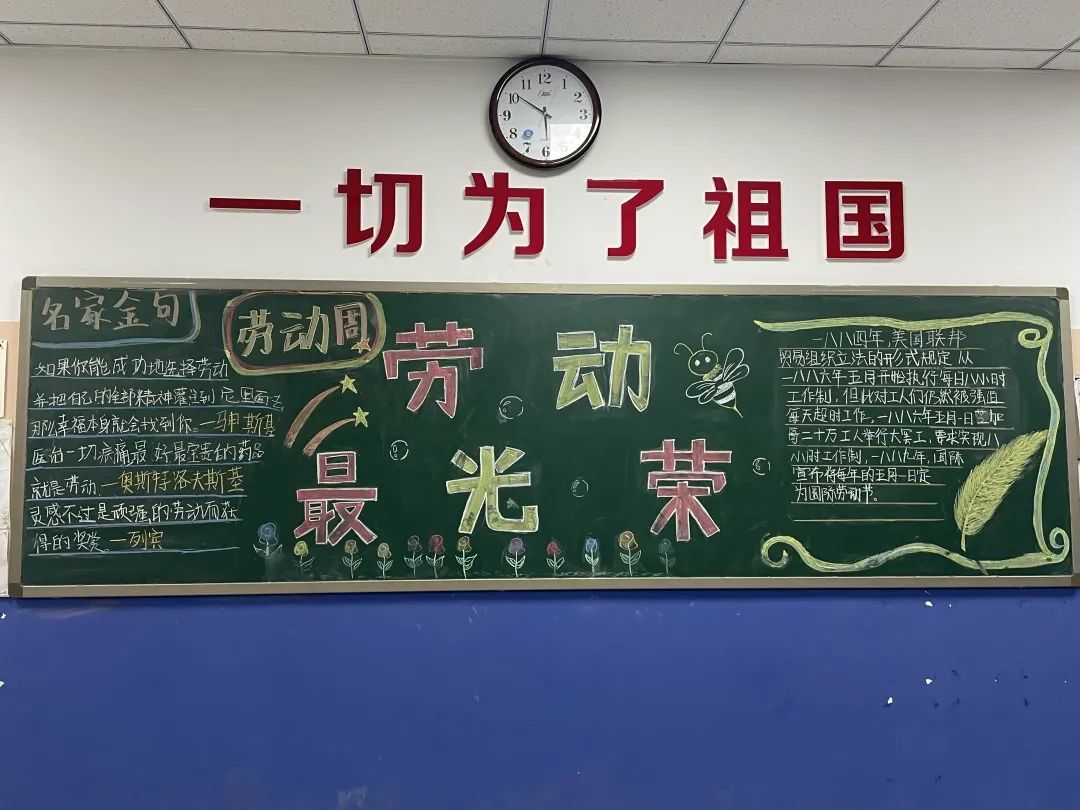 12
1
2
3
6
7
8
9
10
11
一切为了祖国
名家金句
如果你能成功地选择劳动
并把自己的全部精神灌注到它里面去
那么幸福本身就会找到你。—乌申斯基
医治一切病痛最好最宝贵的药品
就是劳动。—奥斯特洛夫斯基
灵感不过是顽强的劳动而获
得的奖赏。—列宾
劳动周
劳动
最光荣
一八八四年,美国联邦
贸易组织立法的形式规定从
一八八六年五月开始执行每日八小时
工作制,但此对工人们仍然很强但
每天超时工作。一八八六年五月一日芝加
哥二十万工人举行大罢工,要求实现八
小时工作制,一八八九年,国际
宣布将每年的五月一日定
为国际劳动节。